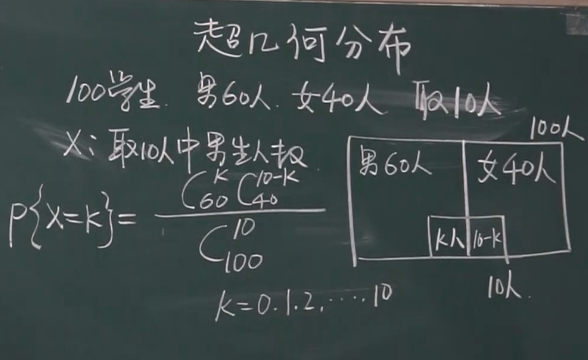 超几何分布
100学生. 男60人. 女40人 取10人
X: 取10人中男生人数
P{X=K}= C₆₀ᴷ C₄₀¹⁰⁻ᴷ / C₁₀₀¹⁰
K=0.1.2.·····10
100人
男60人 女40人
K人 10-K
10人.